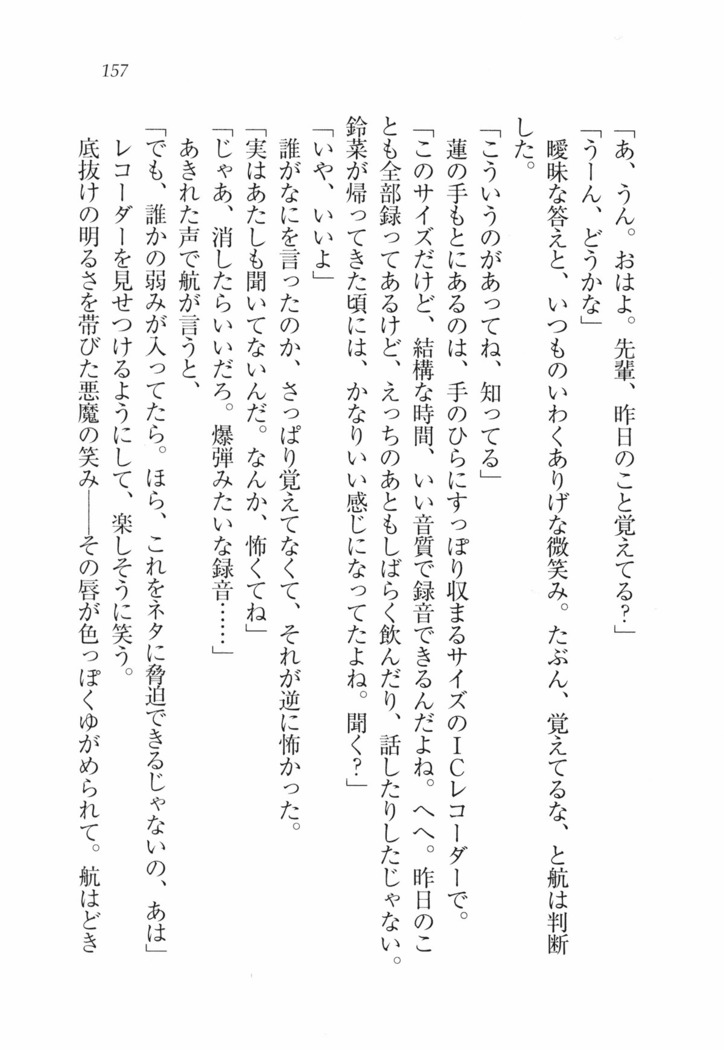 157
「あ、うん。おはよ。先輩、昨日のこと覚えてる？」
「うーん、どうかな」
曖昧な答えと、いつものいわくありげな微笑み。たぶん、覚えてるな、と航は判断
した。
「こういうのがあってね、知ってる」
蓮の手もとにあるのは、手のひらにすっぽり収まるサイズのＩＣレコーダーで。
「このサイズだけど、結構な時間、いい音質で録音できるんだよね。へへ。昨日のこ
とも全部録ってあるけど、えっちのあともしばらく飲んだり、話したりしたじゃない。
鈴菜が帰ってきた頃には、かなりいい感じになってたよね。聞く？」
「いや、いいよ」
誰がなにを言ったのか、さっぱり覚えてなくて、それが逆に怖かった。
「実はあたしも聞いてないんだ。なんか、怖くてね」
「じゃあ、消したらいいだろ。爆弾みたいな録音……」
あきれた声で航が言うと、
「でも、誰かの弱みが入ってたら。ほら、これをネタに脅迫できるじゃないの、あは」
レコーダーを見せつけるようにして、楽しそうに笑う。
底抜けの明るさを帯びた悪魔の笑み――その唇が色っぽくゆがめられて。航はどき